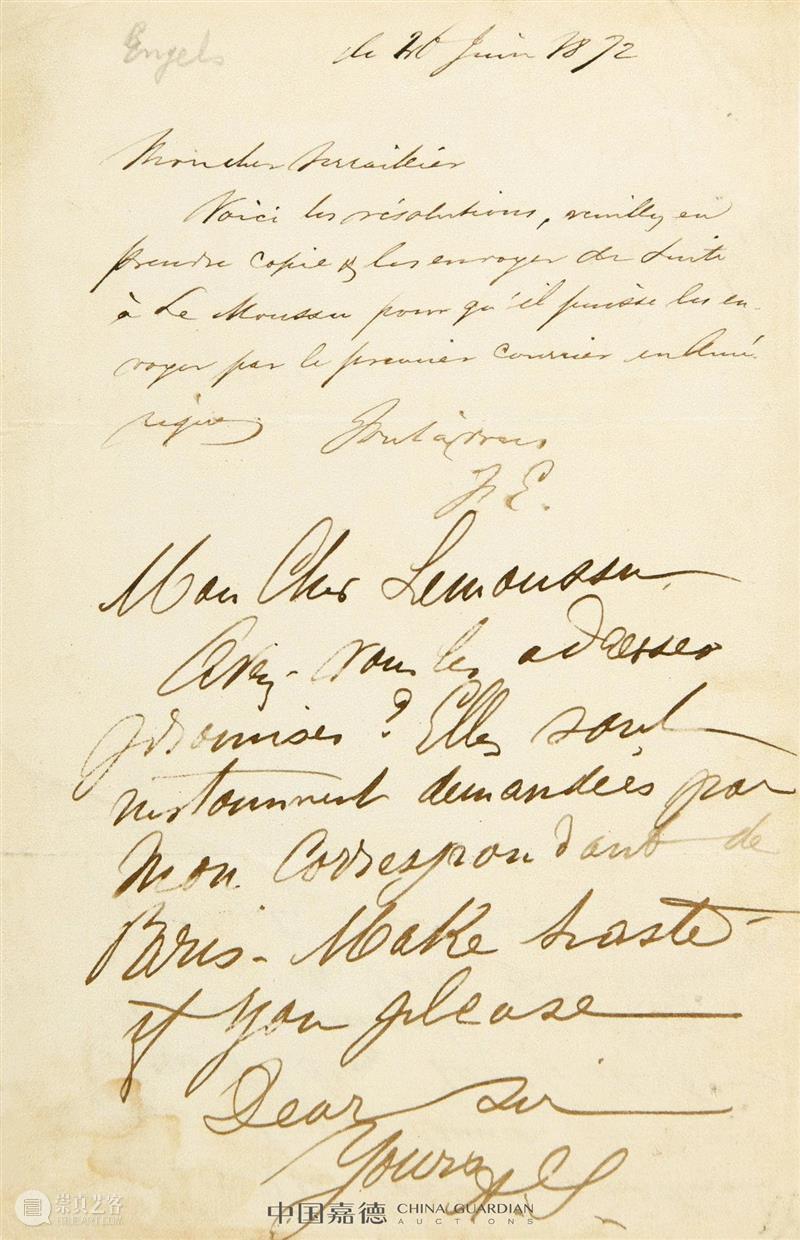 Engels
le 20 Juin 1872
Mon cher Serraillier
Voici les résolutions, veuillez en
prendre copie & les envoyer de suite
à Le Moussu pour qu'il puisse les en-
voyer par le premier courrier en Amé-
rique.
Tout à vous
F. E.
Mon Cher Lemoussu,
Avez-vous les adresses
promises? Elles sont
instamment demandées par
mon Correspondant de
Paris - Make haste
if you please
Dear sir
Yours
崇真艺客
TRUEART.COM
中国嘉德 CHINA GUARDIAN
AUCTIONS